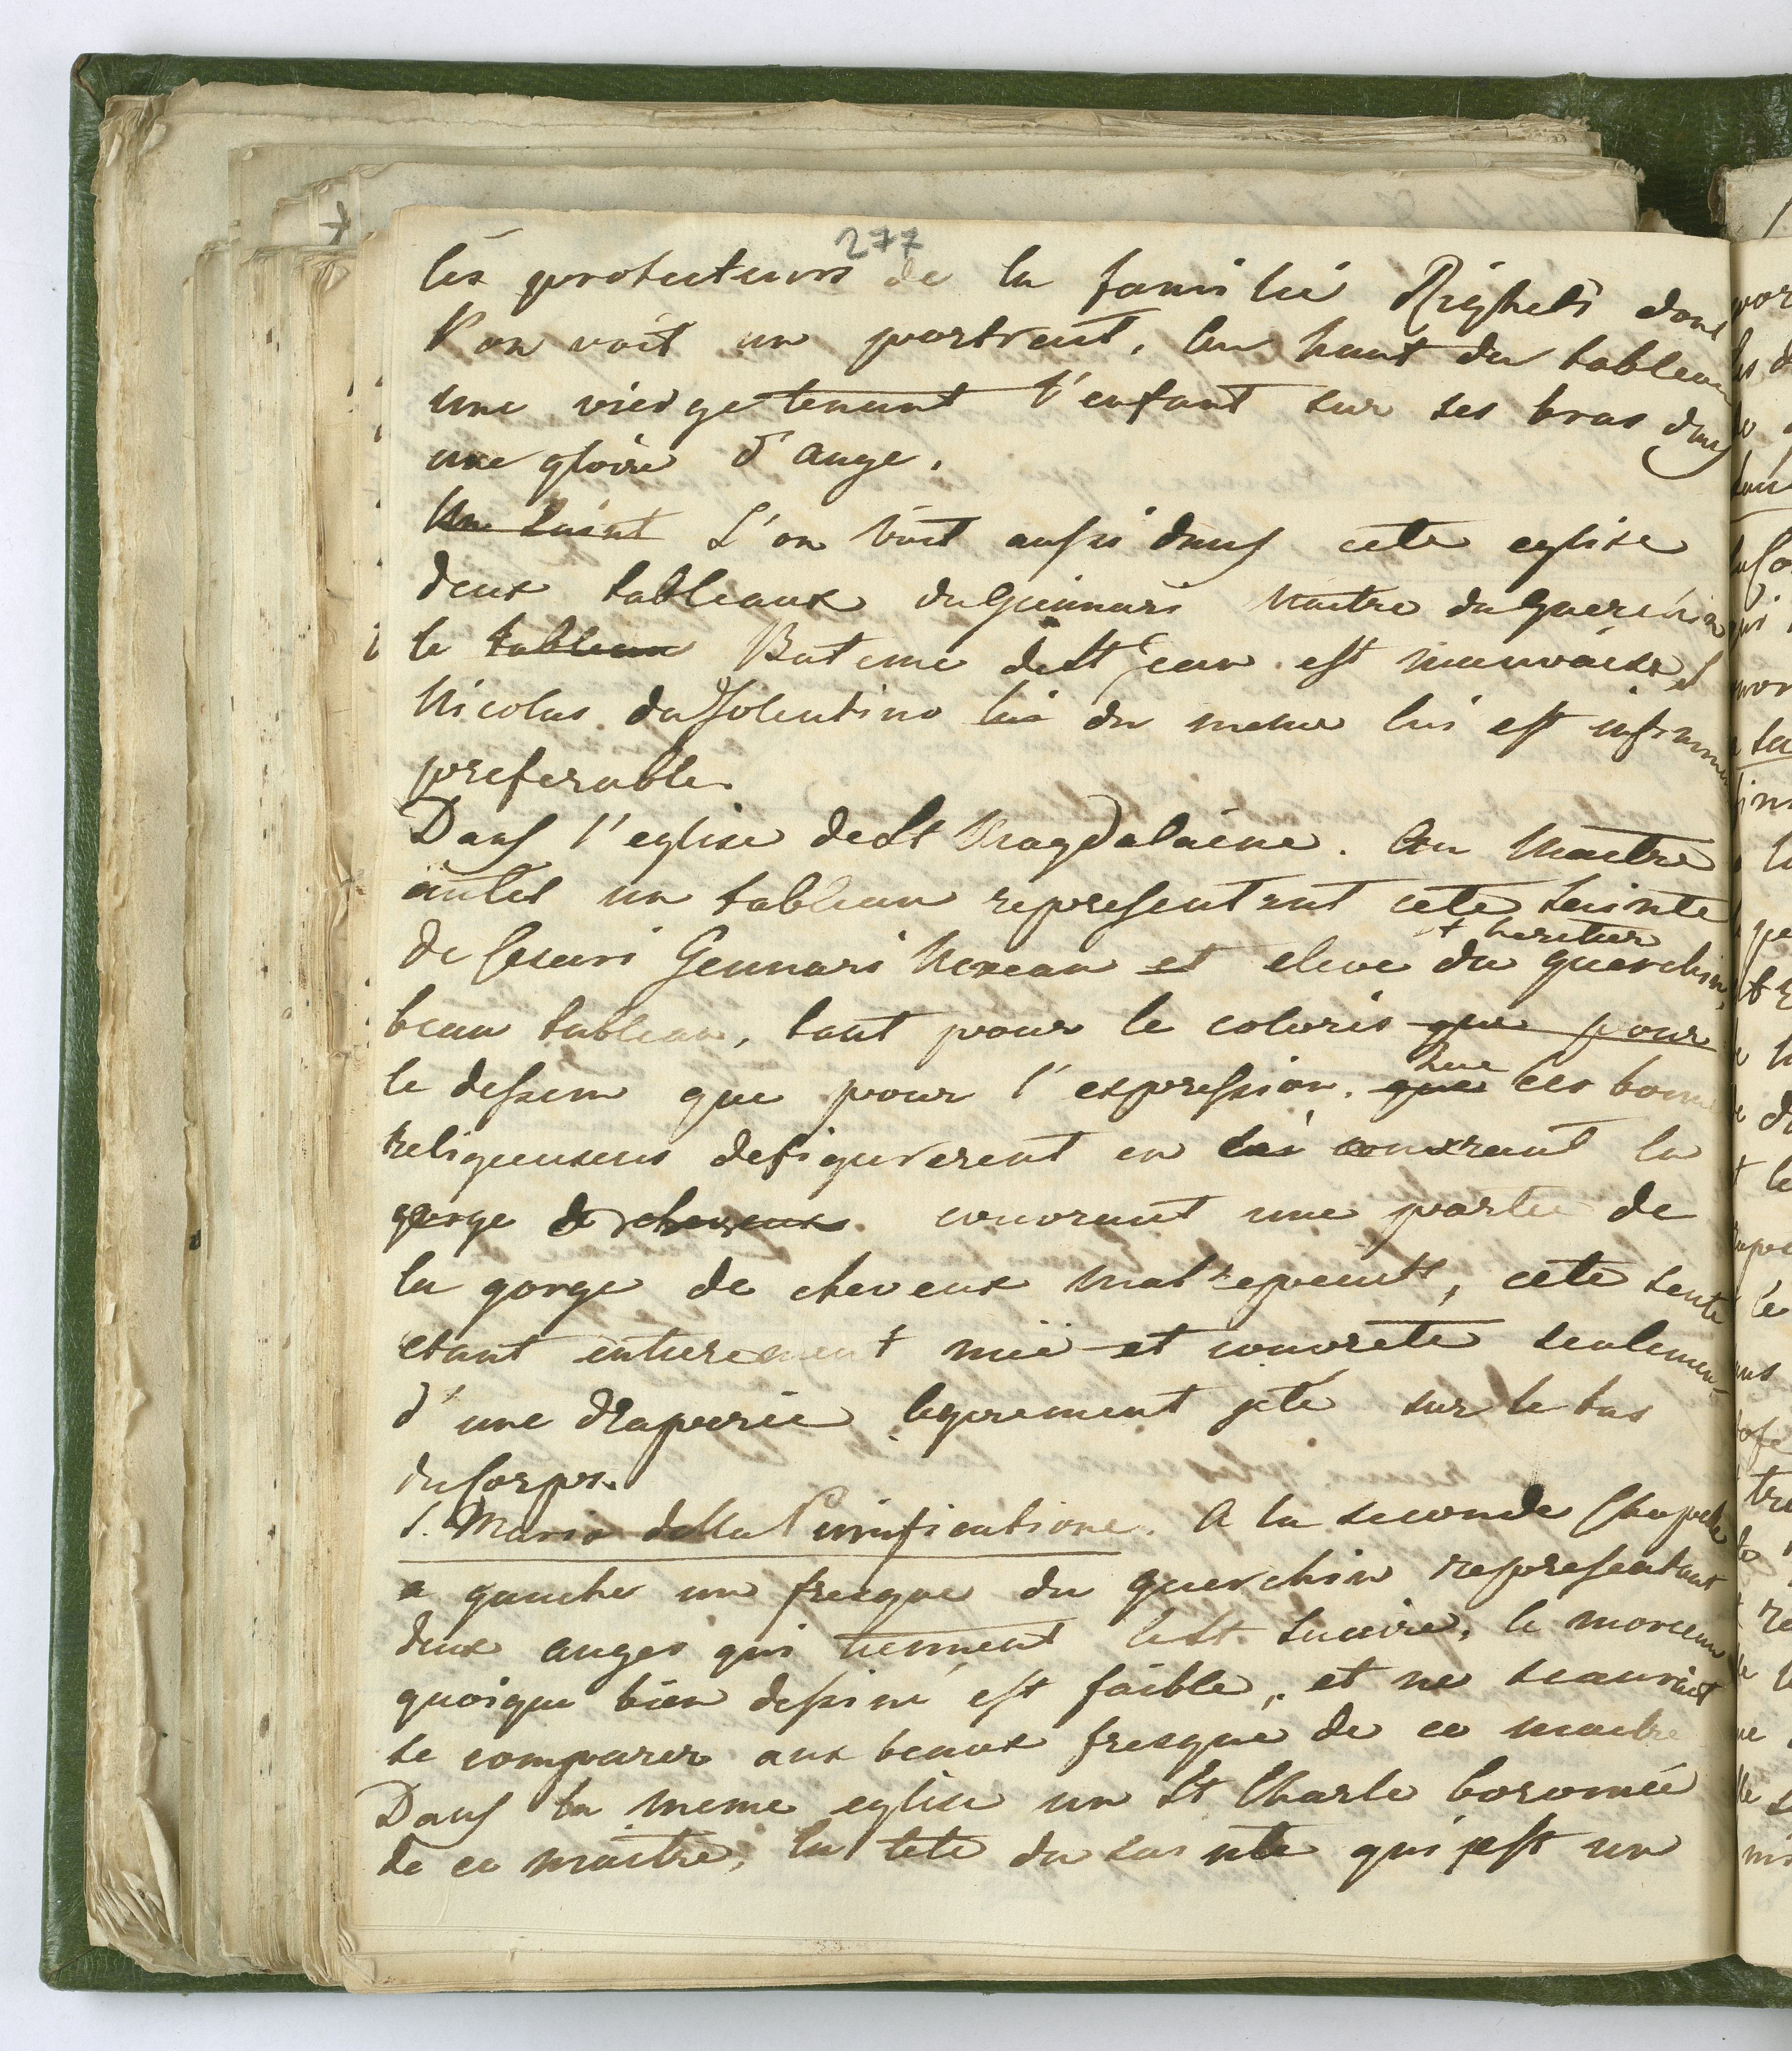 277
les protecteurs de la familie Righetti dont
l'on voit un portrait, au haut du tableau
une vierge tenant l'enfant sur ses bras dans
une gloire d'ange.
Un Saint L'on voit aussi dans cete eglise
deux tableaux du Gennari Maitre du Guerchin
le tableau Bateme de St Jean est mauvais, st
Nicolas da Tolentino lui du meme lui est infiniment
preferable.
Dans l'eglise de St Magdalaine. Au Maitre
autel un tableau representant cete Sainte
de Cesari Gennari Neveau et eleve du guerchin,
et heritier
beau tableau, tant pour le coloris que pour
le dessein que pour l'expression. que les bonnes
religieuses defigurerent en lui couvrant la
gorge de cheveux. couvrant une partie de
la gorge de cheveux mal repeints, cete sente
etant entierement nüe et couverte seulement
d'une draperie legerement jeté sur le bas
du Corps.
S. Maria della Purificatione. A la seconde Chapelle
a gauche un fresque du guerchin representant
deux anges qui tiennent le St. Suaire, le morceau
quoique bien dessiné est faible, et ne scauroit
se comparer aux beaux fresque de ce maitre
Dans la meme eglise un St Charle boromée
de ce maitre, la tete du sainte qui est un